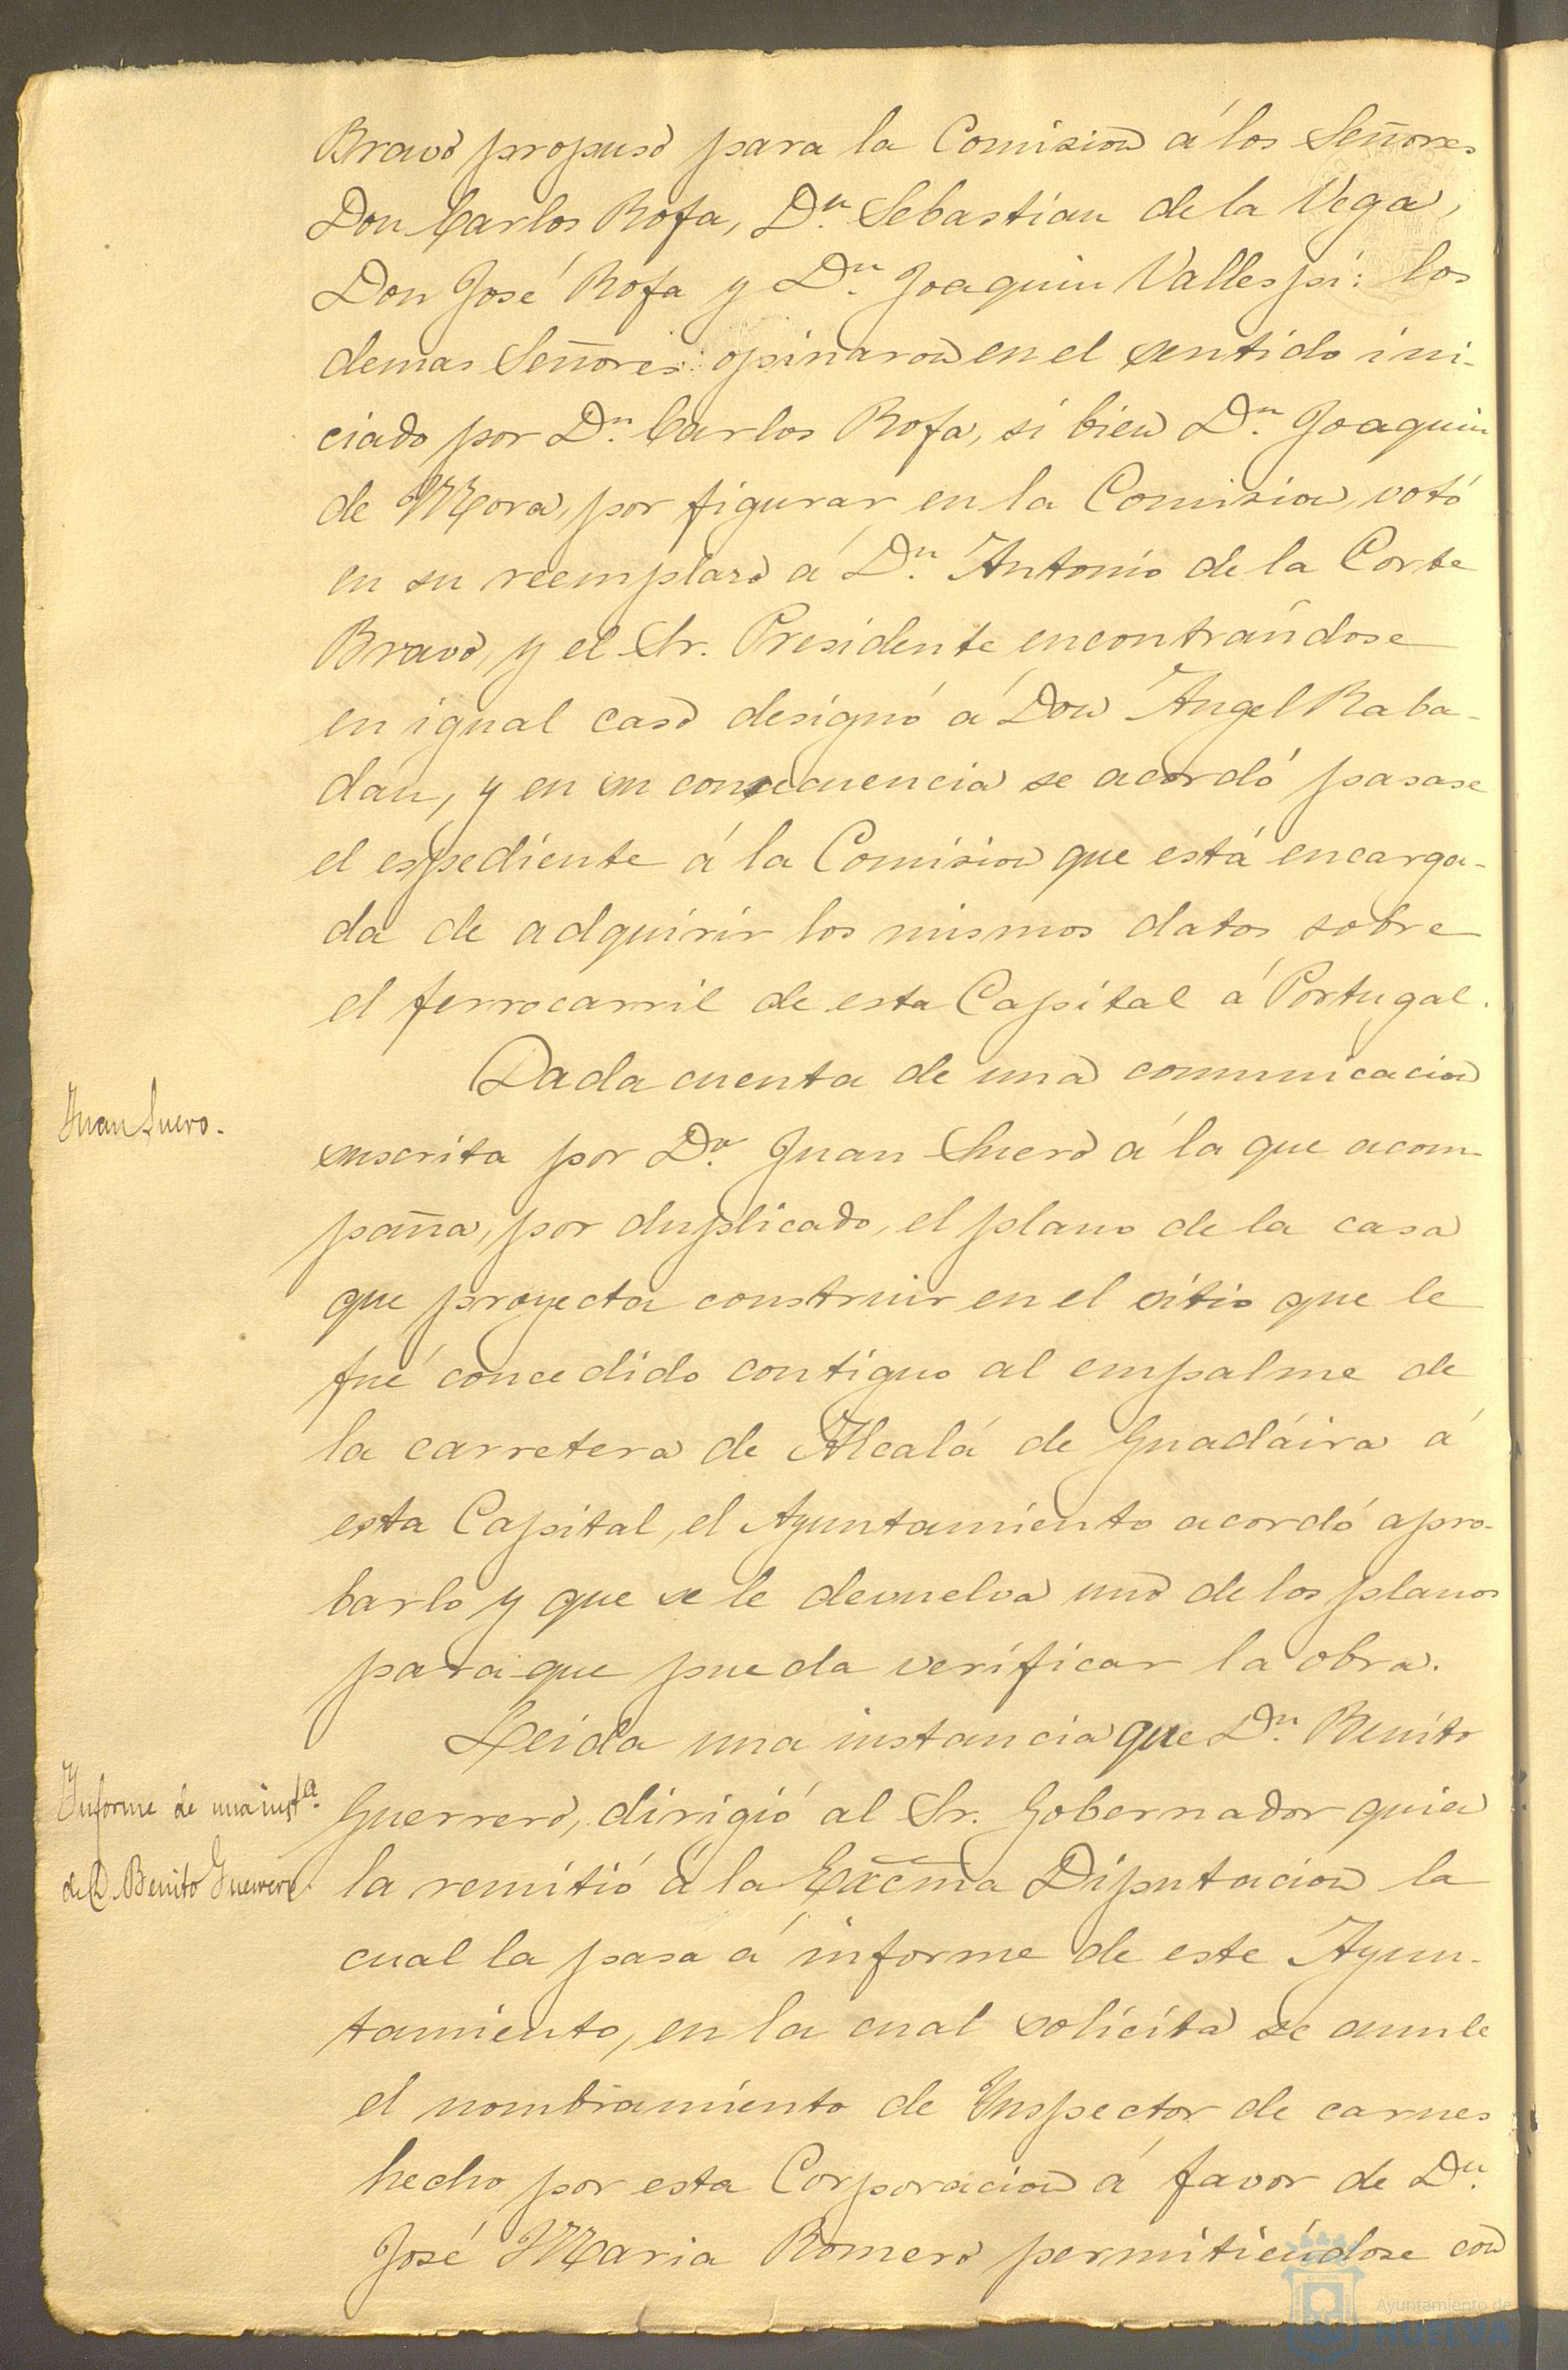 Bravo propuso para la Comision á los Señores
Don Carlos Rofa, Dn. Sebastian de la Vega,
Don José Rofa y Dn. Joaquin Vallespí: los
demas Señores opinaron en el sentido ini-
ciado por Dn. Carlos Rofa, si bien Dn. Joaquin
de Mora, por figurar en la Comision, votó
en su reemplazo á Dn. Antonio de la Corte
Bravo, y el Sr. Presidente encontrándose
en igual caso designó á Don Angel Raba-
dan, y en su consecuencia se acordó pasase
el espediente á la Comision que está encarga-
da de adquirir los mismos datos sobre
el ferrocarril de esta Capital á Portugal.
Juan Suero.
Dada cuenta de una comunicacion
suscrita por Dn. Juan Suero á la que acom-
paña, por duplicado, el plano de la casa
que proyecta construir en el sitio que le
fué concedido contiguo al empalme de
la carretera de Alcalá de Guadáira á
esta Capital, el Ayuntamiento acordó apro-
barlo y que se le devuelva uno de los planos
para que pueda verificar la obra.
Informe de una insta.
de D. Benito Guerrero.
Leida una instancia que Dn. Benito
Guerrero, dirigió al Sr. Gobernador quien
la remitió á la Excma Diputacion la
cual la pasa á informe de este Ayun-
tamiento, en la cual solicita se anule
el nombramiento de Inspector de carnes
hecho por esta Corporacion á favor de Dn.
José Maria Romero permitiéndose con
Ayuntamiento de
HUELVA